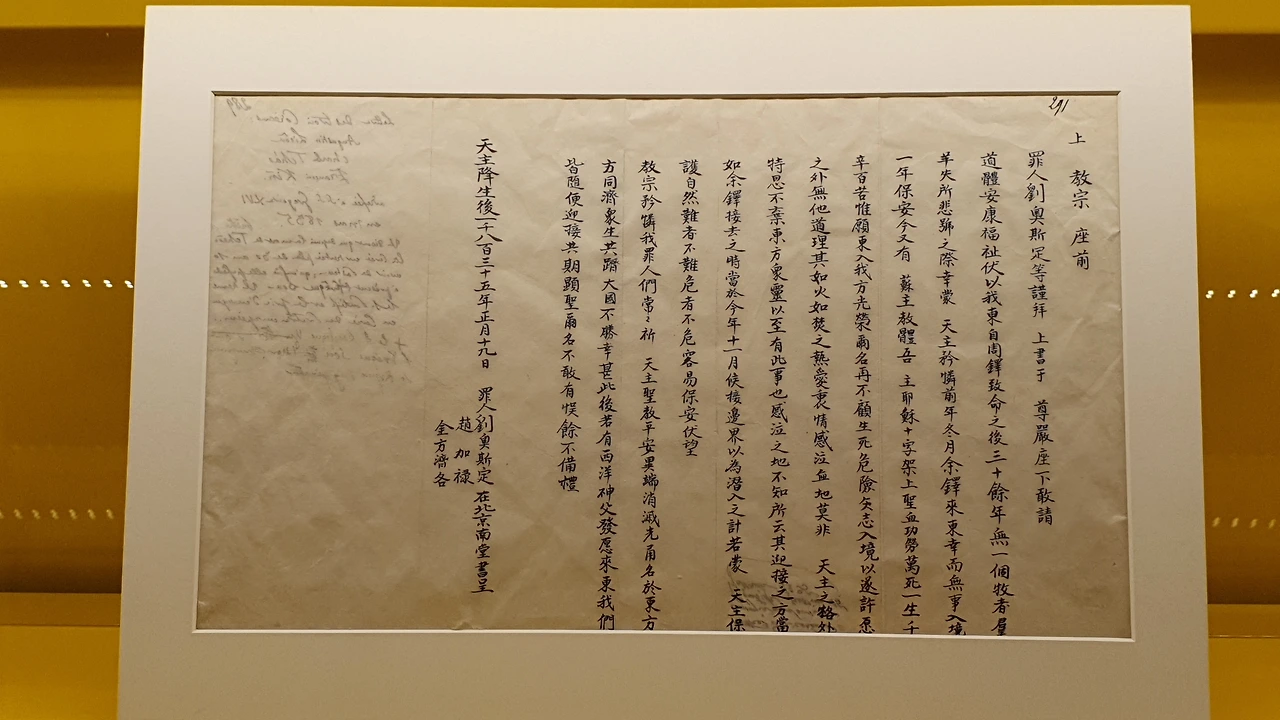 291
上 教宗 座前
罪人劉奧斯定等謹拜 上書于 尊嚴座下敢請
道體安康福祉伏以我東自周鐸致命之後三十餘年無一個牧者屋
羊失所悲號之際幸蒙 天主矜憐前年冬月余鐸來東幸而無事入境
一年保安今又有 蘇主教體吾 主耶穌十字架上聖血功勞萬死一生千
辛百苦惟願東入我方光榮爾名再不顧生死危險矢志入境以遂許愿
之外無他道理其如火如焚之熱愛衷情感泣血地莫非 天主之格外
特恩不棄東方衆靈以至有此事也感泣之地不知所云其迎接之方當
如余鐸接去之時當於今年十一月候接邊界以為潛入之計若蒙 天主保
護自然難者不難危者不危容易保安伏望
教宗矜憐我罪人們常〻祈 天主聖教平安異端消滅光甬名於東方
方同濟衆生共躋大國不勝幸甚此後若有西洋神父發愿來東我們
皆隨便迎接共期顯聖爾名不敢有悞餘不備禮
天主降生後一千八百三十五年正月十九日 罪人劉奧斯定 在北京南堂書呈
趙加祿
金方濟各
289